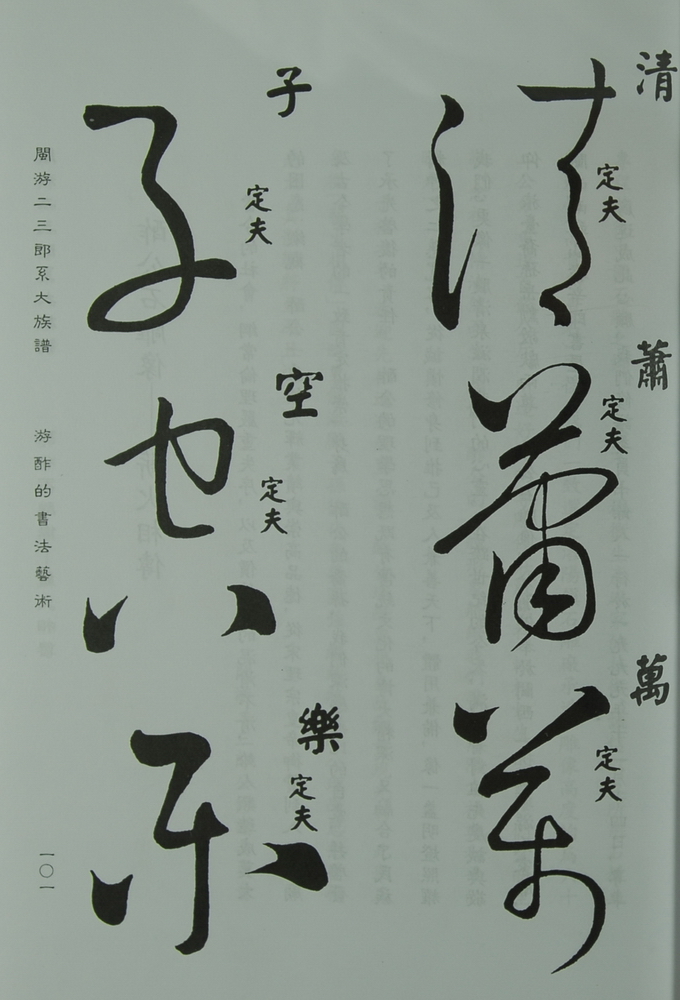 清
定夫
清
蕭
定夫
蕭
萬
定夫
萬
子
定夫
子
空
定夫
空
樂
定夫
樂
閩游二三郎系大族譜
游酢的書法藝術
一〇一